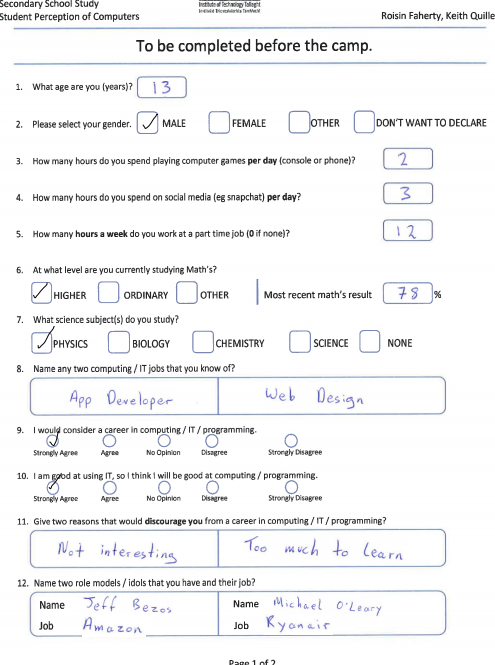 Secondary School Study
Student Perception of Computers
Institute of Technology Tallaght
Roisin Faherty, Keith Quille
To be completed before the camp.
1. What age are you (years)? 13
2. Please select your gender. ✓ MALE FEMALE OTHER DON'T WANT TO DECLARE
3. How many hours do you spend playing computer games per day (console or phone)? 2
4. How many hours do you spend on social media (eg snapchat) per day? 3
5. How many hours a week do you work at a part time job (0 if none)? 12
6. At what level are you currently studying Math's?
✓ HIGHER ORDINARY OTHER Most recent math's result 78 %
7. What science subject(s) do you study?
✓ PHYSICS BIOLOGY CHEMISTRY SCIENCE NONE
8. Name any two computing / IT jobs that you know of?
App Developer Web Design
9. I would consider a career in computing / IT / programming.
✓
Strongly Agree Agree No Opinion Disagree Strongly Disagree
10. I am good at using IT, so I think I will be good at computing / programming.
✓
Strongly Agree Agree No Opinion Disagree Strongly Disagree
11. Give two reasons that would discourage you from a career in computing / IT / programming?
Not interesting Too much to learn
12. Name two role models / idols that you have and their job?
Name Jeff Bezos Name Michael O'Leary
Job Amazon Job Ryanair
Page 1 of 2